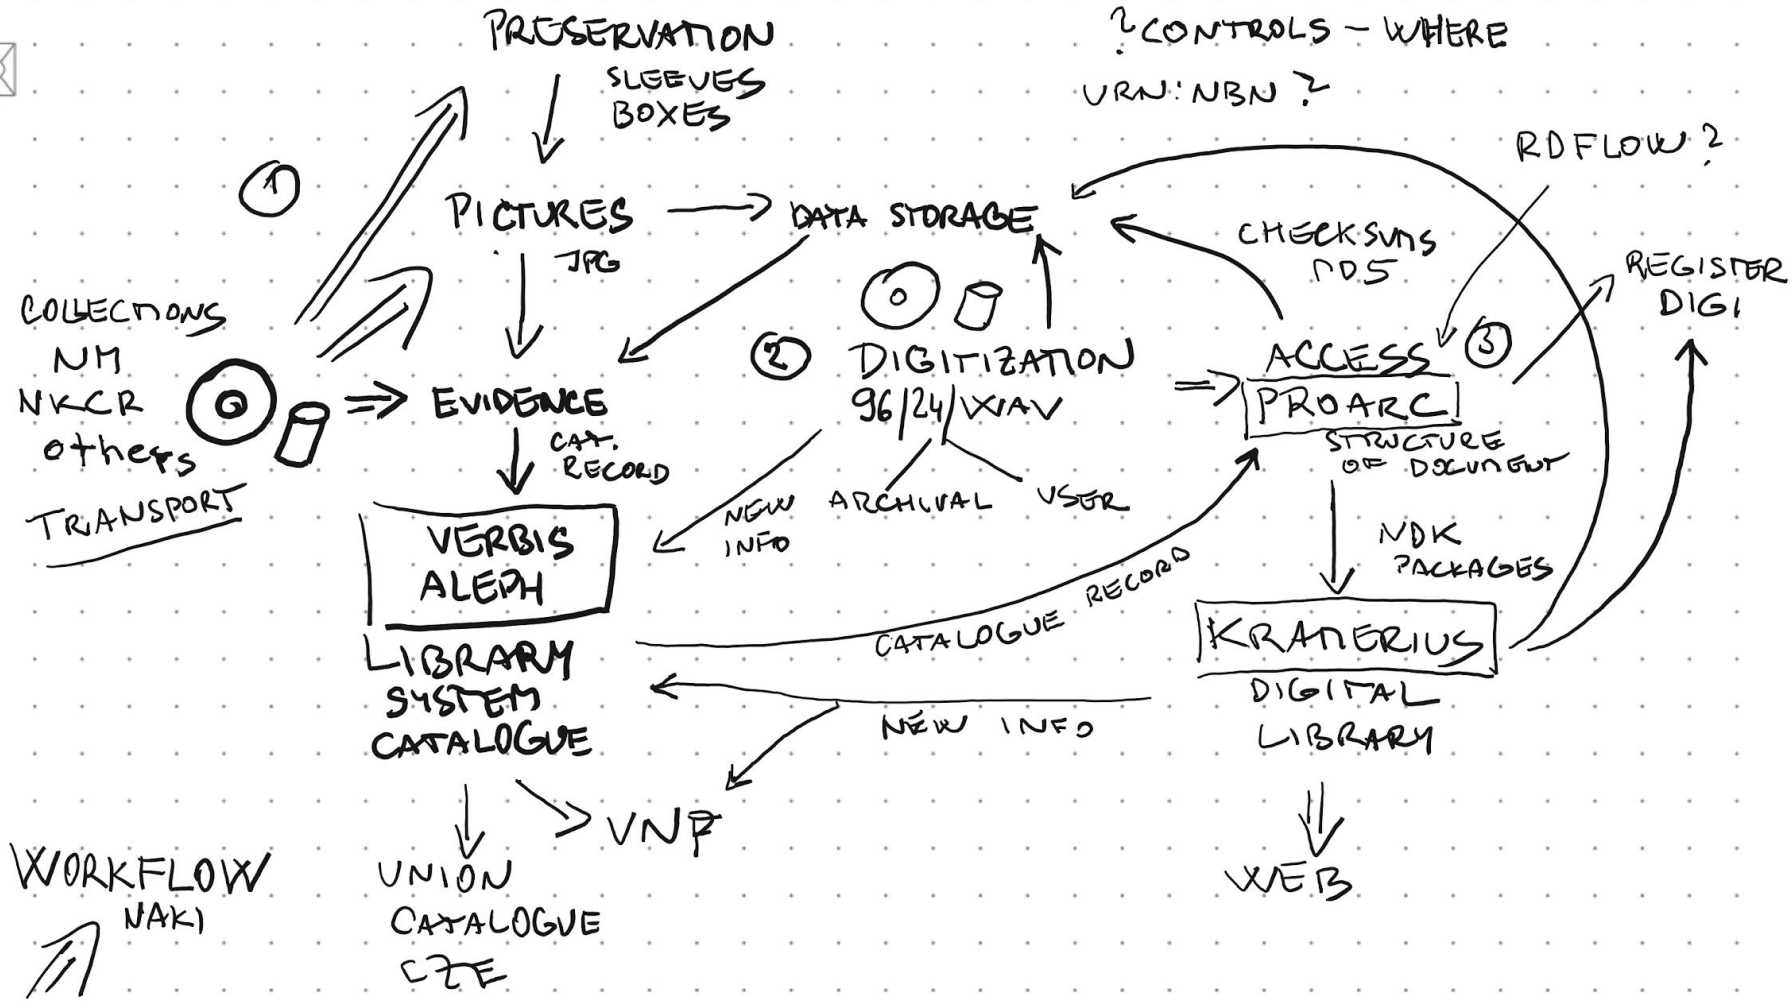 PRESERVATION
SLEEVES
BOXES
? CONTROLS – WHERE
URN:NBN ?
RDFLOW ?
1
PICTURES
JPG
DATA STORAGE
CHECKSUMS
MD5
REGISTER
DIGI
COLLECTIONS
NM
NKCR
others
TRANSPORT
EVIDENCE
CAT.
RECORD
2
DIGITIZATION
96/24/WAV
ARCHIVAL
USER
NEW
INFO
3
ACCESS
PROARC
STRUCTURE
OF DOCUMENT
NDK
PACKAGES
VERBIS
ALEPH
LIBRARY
SYSTEM
CATALOGUE
CATALOGUE RECORD
NEW INFO
KRAMERIUS
DIGITAL
LIBRARY
WEB
VNF
UNION
CATALOGUE
CZE
WORKFLOW
NAKI